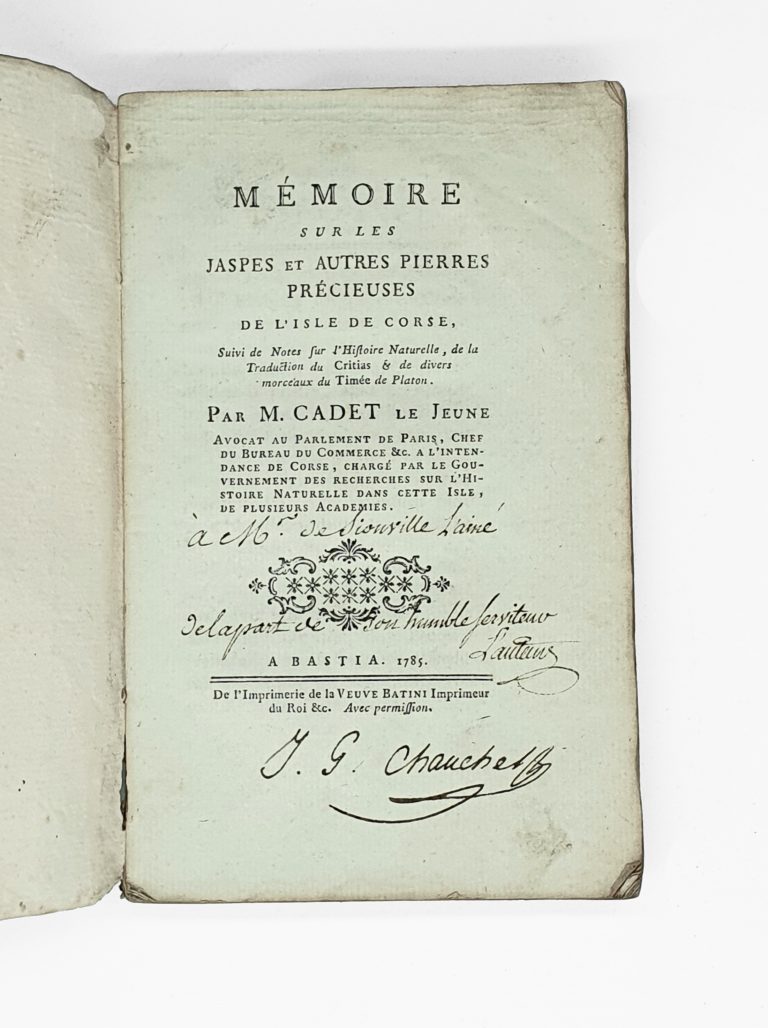 MÉMOIRE
SUR LES
JASPES ET AUTRES PIERRES
PRÉCIEUSES
DE L'ISLE DE CORSE,
Suivi de Notes ſur l'Hiſtoire Naturelle, de la
Traduction du Critias & de divers
morceaux du Timée de Platon.
PAR M. CADET LE JEUNE
AVOCAT AU PARLEMENT DE PARIS, CHEF
DU BUREAU DU COMMERCE &c. A L'INTEN-
DANCE DE CORSE, CHARGÉ PAR LE GOU-
VERNEMENT DES RECHERCHES SUR L'HI-
STOIRE NATURELLE DANS CETTE ISLE,
DE PLUSIEURS ACADEMIES.
à Mr. de Siouville L'ainé
de la part de son humble serviteur
L'auteur
A BASTIA. 1785.
De l'Imprimerie de la VEUVE BATINI Imprimeur
du Roi &c. Avec permiſſion.
J. G. Chauchet